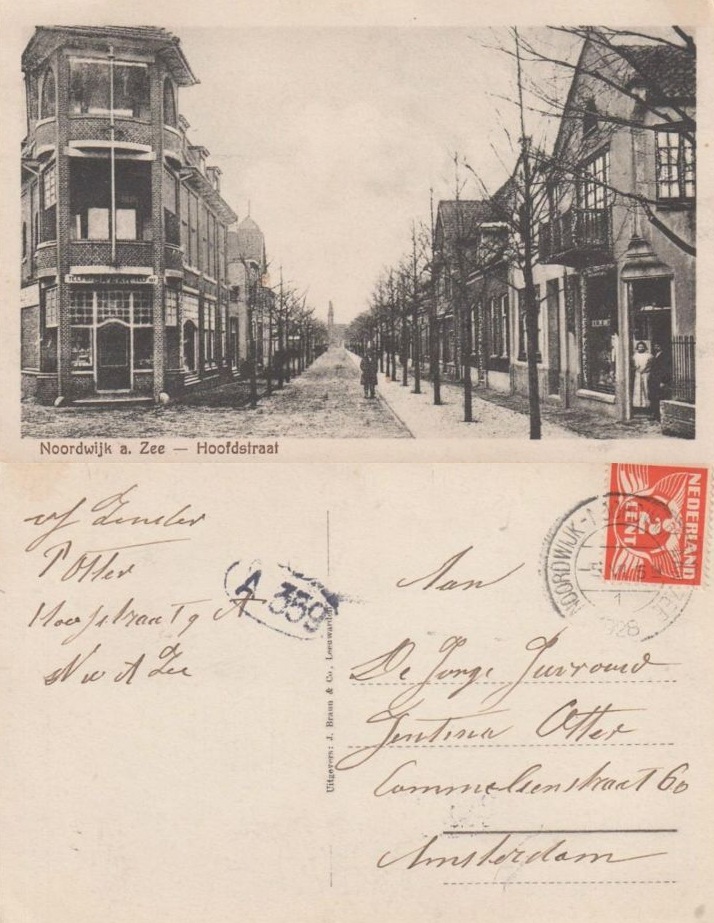 Noordwijk a. Zee — Hoofdstraat
afzender
P Otter
Hoofstraat 9 A
N w A Zee
A 339
Uitgevers: J. Braun & Co., Leeuwarden
NEDERLAND
2
CENT
NOORDWIJK-A
ZEE
1
1928
Aan
De Jonge Juvrouw
Jentina Otter
Commelenstraat 60
Amsterdam